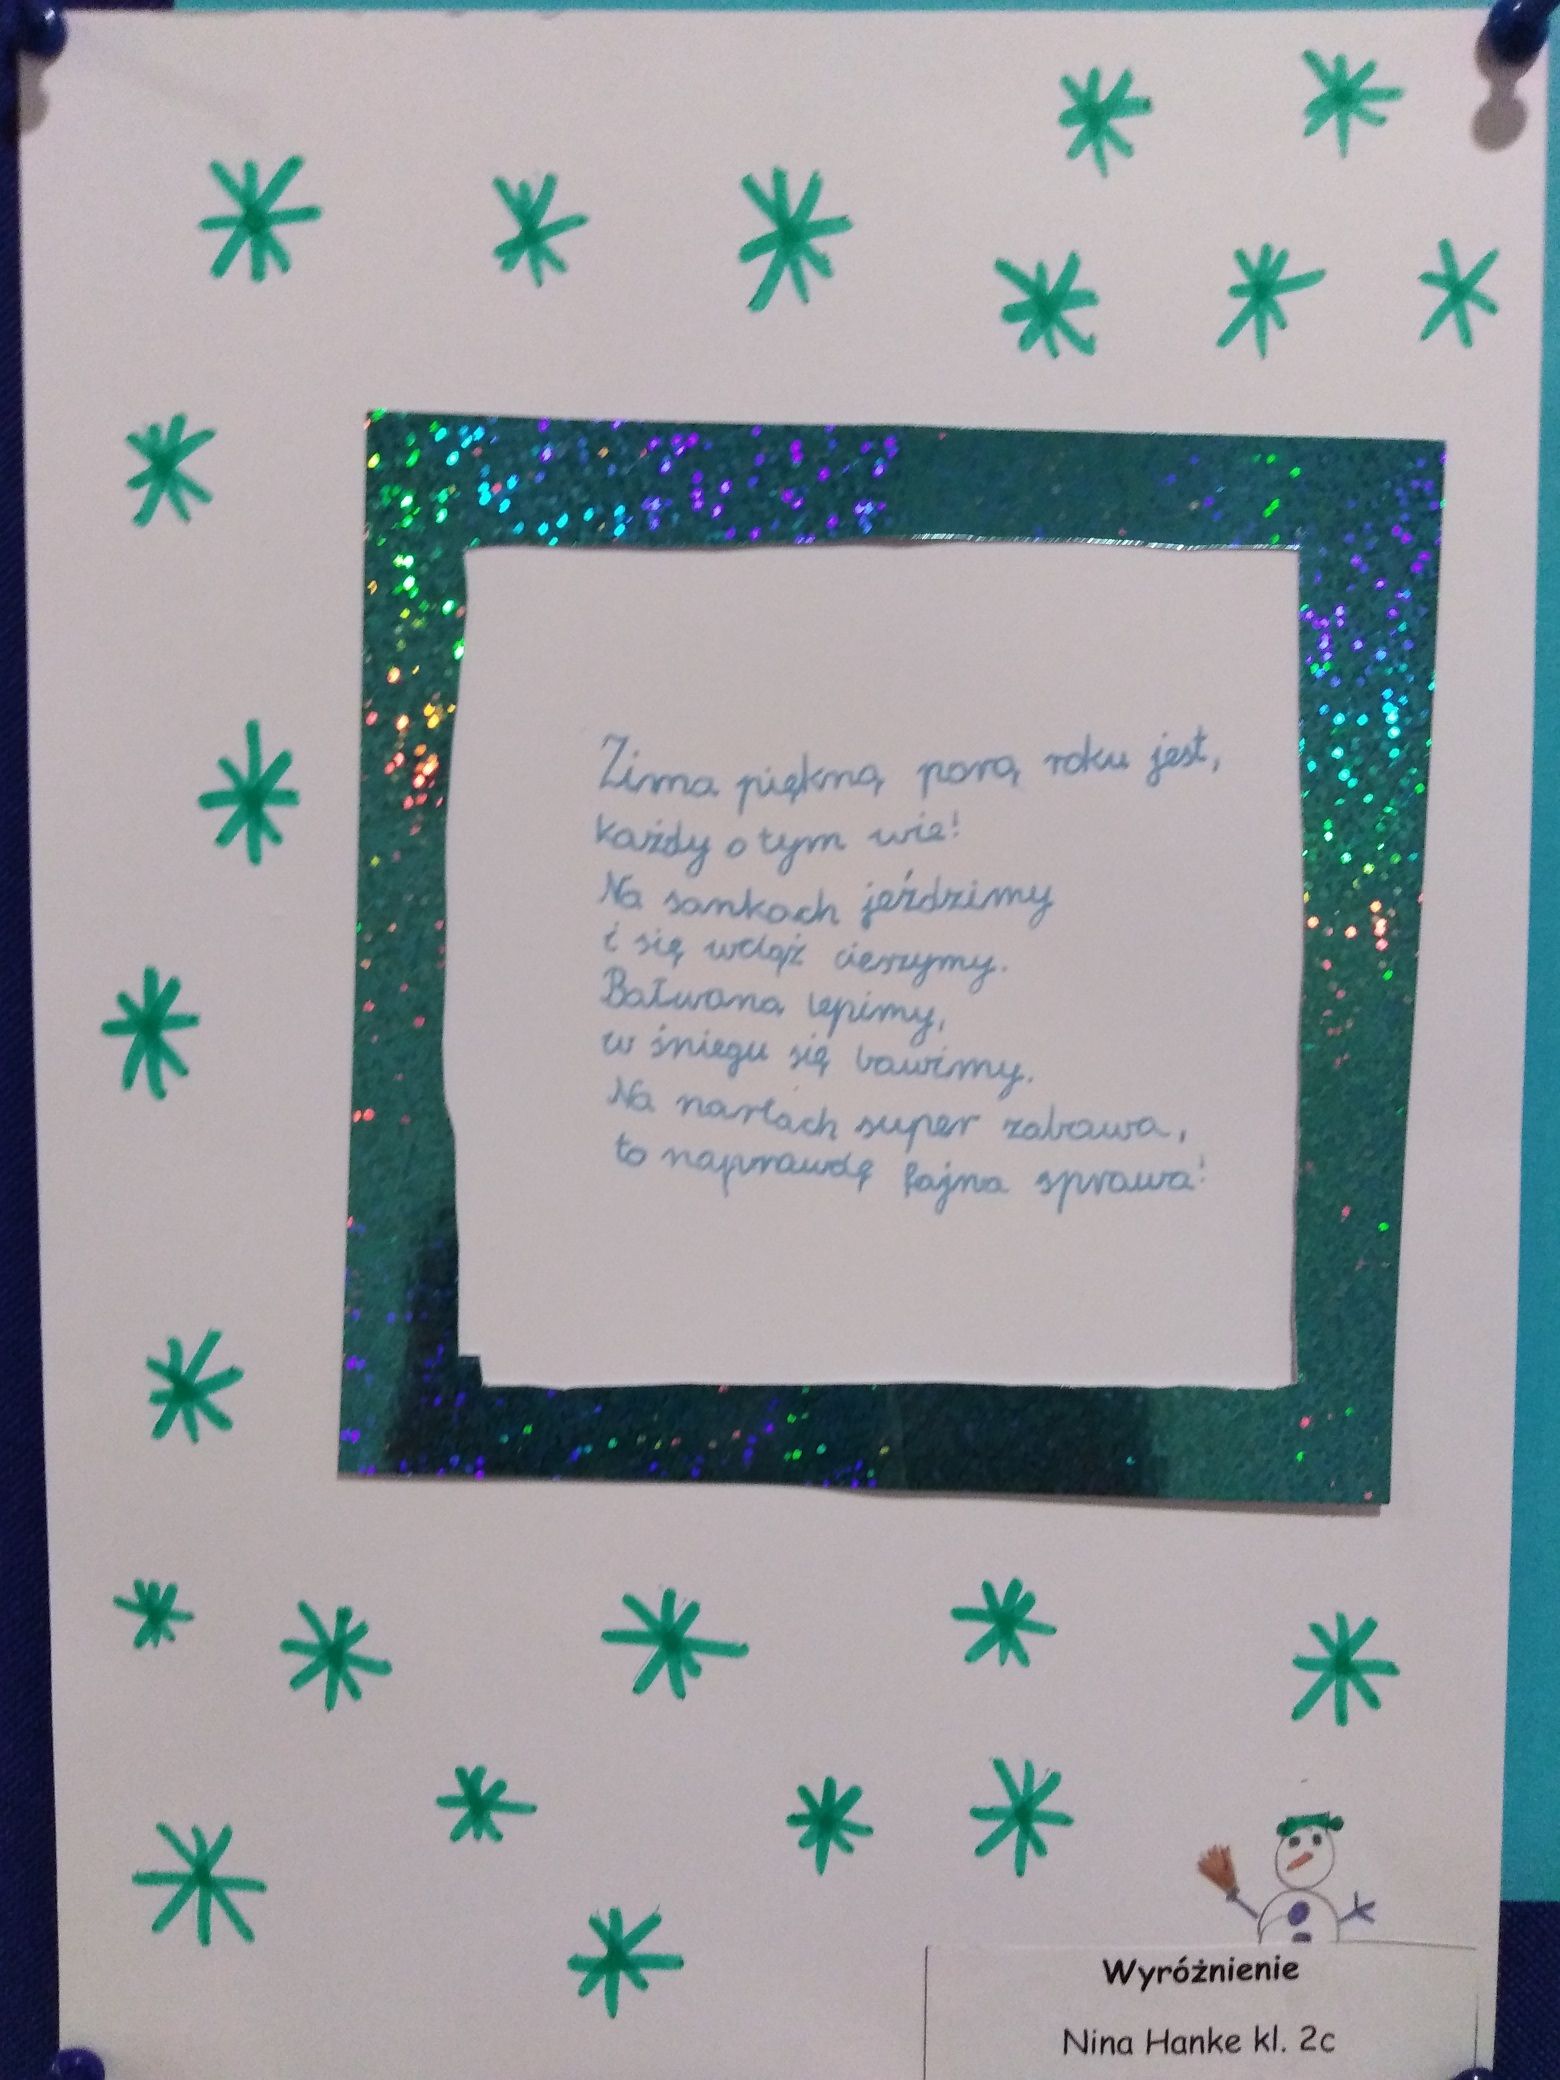 Zima piękną porą roku jest,
każdy o tym wie!
Na sankach jeździmy
i się wciąż cieszymy.
Bałwana lepimy,
w śniegu się bawimy.
Na nartach super zabawa,
to naprawdę fajna sprawa!
Wyróżnienie
Nina Hanke kl. 2c